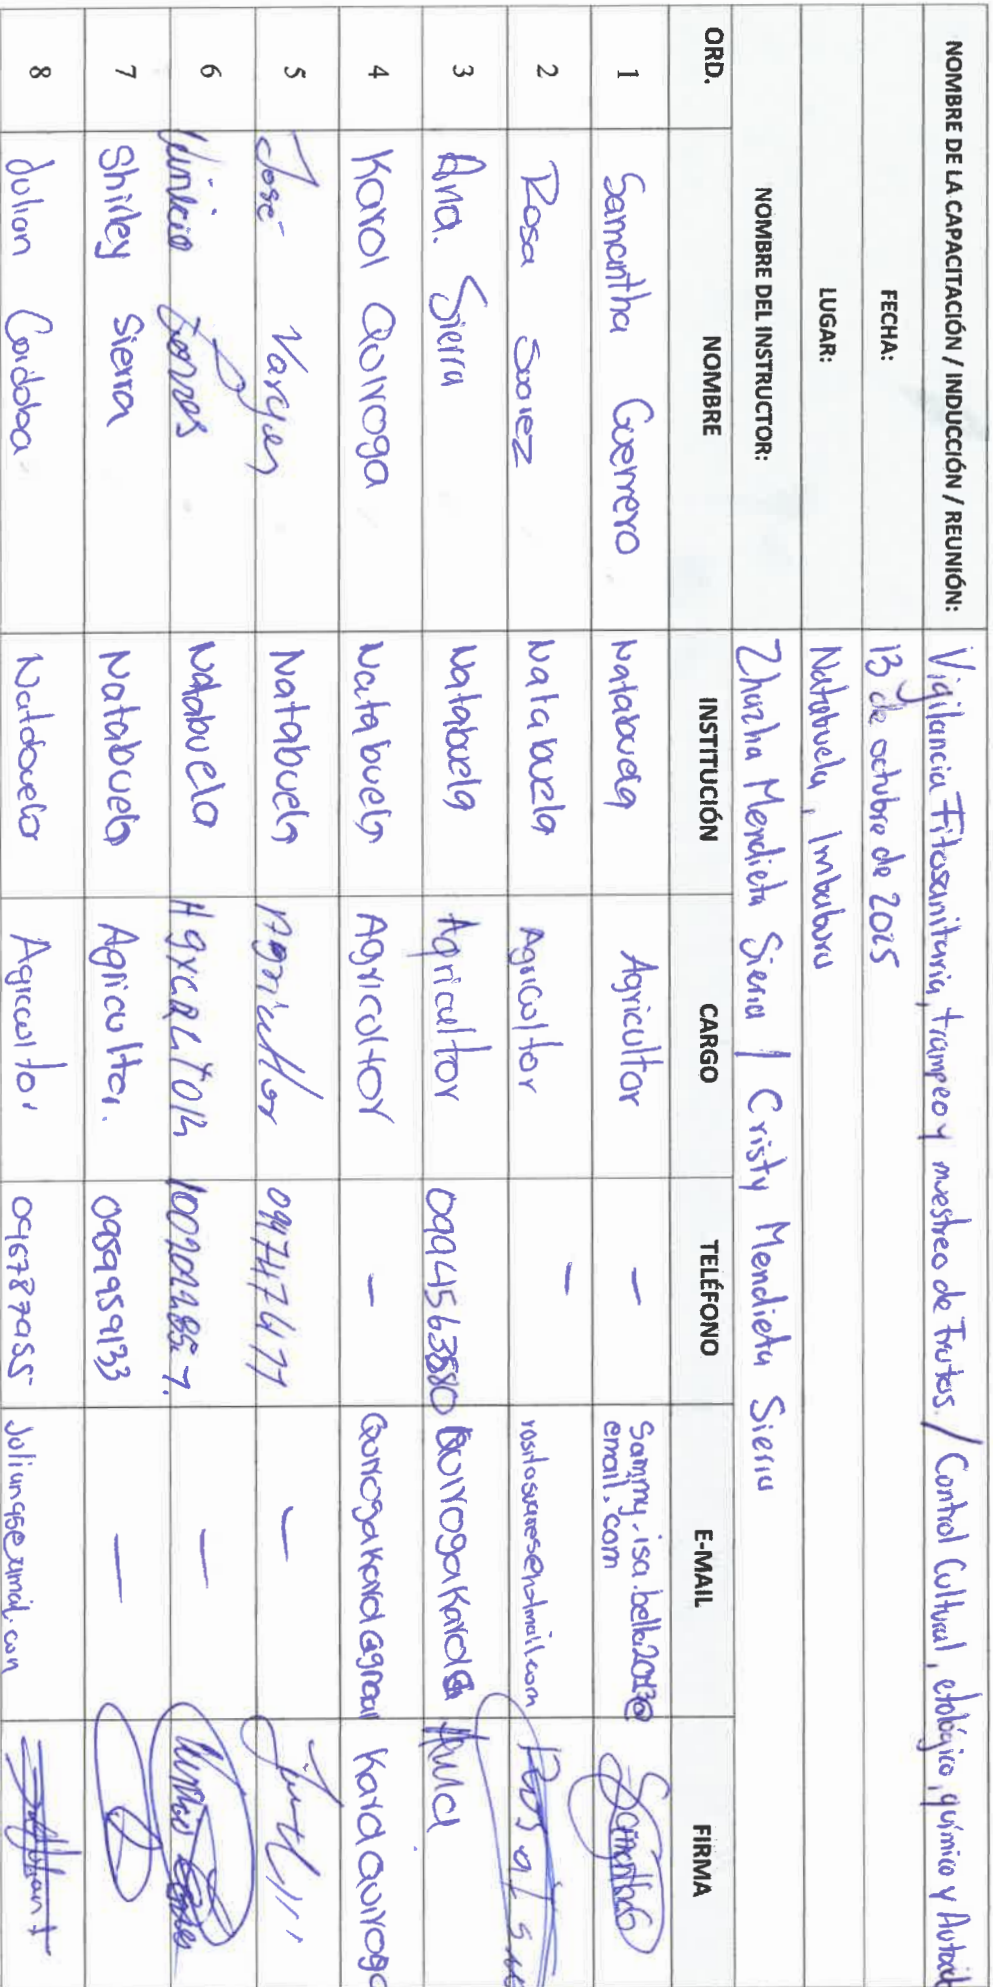 NOMBRE DE LA CAPACITACIÓN / INDUCCIÓN / REUNIÓN: Vigilancia Fitosanitaria, trampeo y muestreo de frutos. / Control Cultural, etológico, químico y
FECHA: 13 de octubre de 2025
LUGAR: Natabuela, Imbabura
NOMBRE DEL INSTRUCTOR: Zharzha Mendieta Sierra / Cristy Mendieta Sierra
ORD. NOMBRE INSTITUCIÓN CARGO TELÉFONO E-MAIL FIRMA
1 Samantha Guerrero Natabuela Agricultor — Sammy.isa.bella2013@
email.com Samantha
2 Rosa Suarez Natabuela Agricultor — Rosa
3 Ana. Sierra Natabuela Agricultor Ana
4 Karol Quiroga Natabuela Agricultor — Karol Quiroga
5 José Vargas Natabuela Agricultor —
6 Vinicio Torres Natabuela Agricultor —
7 Shirley Sierra Natabuela Agricultor. 0959959133 —
8 Julian Cordoba Natabuela Agricultor 0967879855 Julian